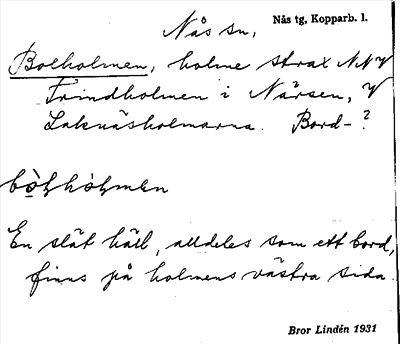 Nås sn, Nås tg, Kopparb. l.
Bolholmen, holme strax NNV
Trindholmen i Närsen, V
Laknäsholmarna. Bord-?
En slät häll, alldeles som ett bord,
finns på holmens västra sida.
Bror Lindén 1931